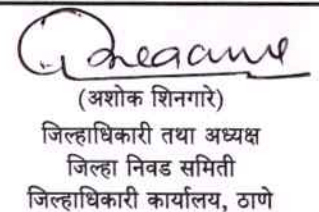 (अशोक शिनगारे)
जिल्हाधिकारी तथा अध्यक्ष
जिल्हा निवड समिती
जिल्हाधिकारी कार्यालय, ठाणे